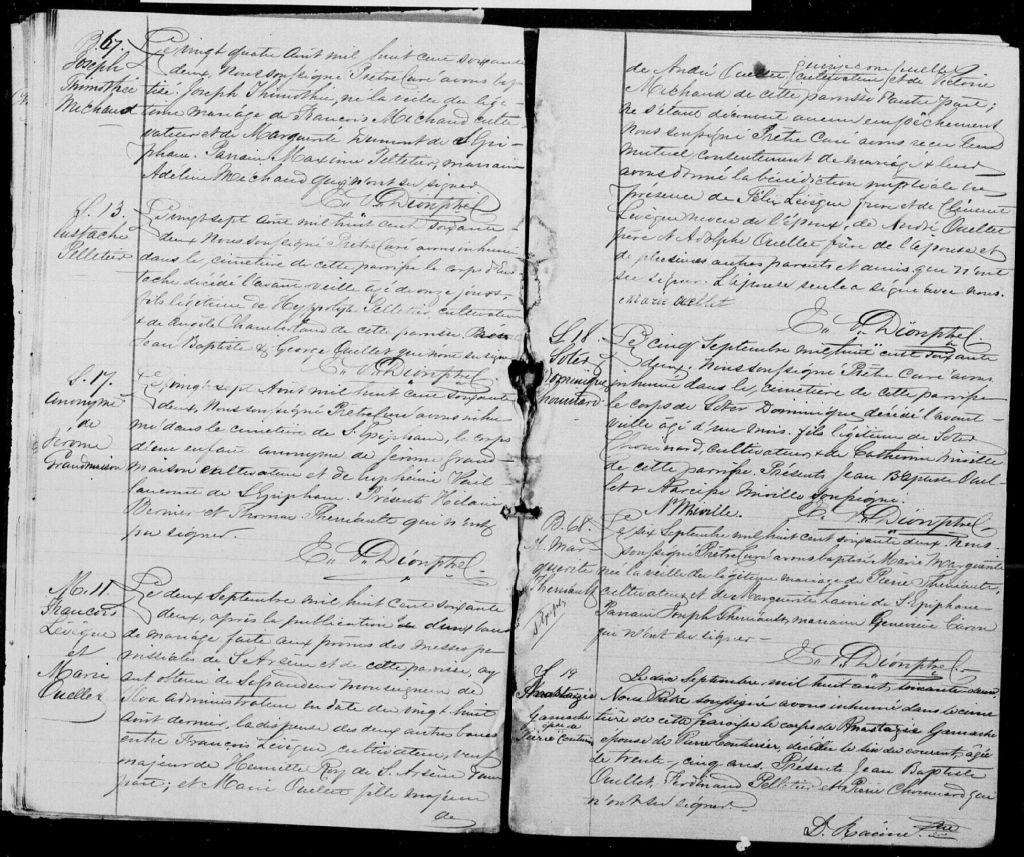 B. 67.
Joseph
Thimothée
Michaud
Le vingt quatre Aout mil huit cent soixante
deux, Nous soussigné Prêtre Curé avons bap-
tisé Joseph Thimothé, né la veille du légi-
time mariage de François Michaud culti-
vateur et de Marguerite Dumont de St Epi-
phane. Parrain Maxime Pelletier, marraine
Adeline Michaud qui n'ont su signer
E. V. Dionptre
S. 13.
Eustache
Pelletier
Le vingt sept Aout mil huit cent soixante
deux Nous soussigné Prêtre Curé avons inhumé
dans le cimetière de cette paroisse le corps d'Eus-
tache décédé l'avant veille agé de onze jours,
fils légitime de Hyppolyte Pelletier, cultivateur
& de Angèle Chamberland de cette paroisse.
Jean Baptiste & George Ouellet qui n'ont su signer
E. V. Dionptre
S. 17.
Anonyme
de
Jérôme
Grandmaison
Le vingt sept Aout mil huit cent soixante
deux, Nous soussigné Prêtre Curé avons inhu-
mé dans le cimetière de St Epiphane, le corps
d'un enfant anonyme de Jérome Grand
maison cultivateur et de Euphémie Vail
lancourt de St Epiphane. Présents Hilaire
Bernier et Thomas Theriault qui n'ont
pu signer.
E. V. Dionptre
M. 11
François
Lévêque
et
Marie
Ouellet
Le deux Septembre mil huit cent soixante
deux, après la publication d'un ban
de mariage faite aux prônes des messes pa-
roissiales de St Arsène et de cette paroisse, ay
ant obtenu de Sa Grandeur Monseigneur de
Tloa administrateur en date du vingt huit
Aout dernier, la dispense des deux autres bans
entre François Lévêque, cultivateur, veuf
majeur de Henriette Roy de St Arsène d'une
part; et Marie Ouellet fille majeure
de
de André Ouellet cultivateur et de Victoire
Michaud de cette paroisse d'autre part;
ne s'étant découvert aucun empêchement
Nous soussigné Prêtre Curé avons reçu leur
mutuel consentement de mariage & leur
avons donné la bénédiction nuptiale en
présence de Félix Lévêque frère et de Clément
Lévêque neveu de l'époux; de André Ouellet
père et Adolphe Ouellet, frère de l'épouse et
de plusieurs autres parents et amis qui n'ont
su signer. L'épouse seule a signé avec nous.
Marie Ouellet
E. V. Dionptre
S. 18.
Soter
Dominique
Chouinard
Le cinq Septembre mil huit cent soixante
deux, Nous soussigné Prêtre Curé avons
inhumé dans le cimetière de cette paroisse
le corps de Soter Dominique décédé l'avant
veille agé d'un mois, fils légitime de Soter
Chouinard, cultivateur, & de Catherine Miville
de cette paroisse. Présents Jean Baptiste Ouel-
let & Narcisse Miville soussigné.
N. Miville.
E. V. Dionptre
B. 68.
M. Mar-
guerite
Theriault
St Epiph.
Le six Septembre mil huit cent soixante deux Nous
soussigné Prêtre Curé avons baptisé Marie Marguerite
née la veille du légitime mariage de Pierre Theriault,
cultivateur et de Marguerite Lavoie de St Epiphane
Parrain Joseph Theriault, marraine Geneviève Caron
qui n'ont su signer
E. V. Dionptre
S. 19
Anastazie
Gamache
épouse
Pierre Couturier
Le dix Septembre mil huit cent soixante deux
Nous Prêtre soussigné avons inhumé dans le cime
tière de cette paroisse le corps de Anastazie Gamache
épouse de Pierre Couturier, décédée le six du courant, agée
de trente-cinq ans. Présents Jean Baptiste
Ouellet, Ferdinand Pelletier et Pierre Chouinard qui
n'ont su signer.
D. Racine Ptre